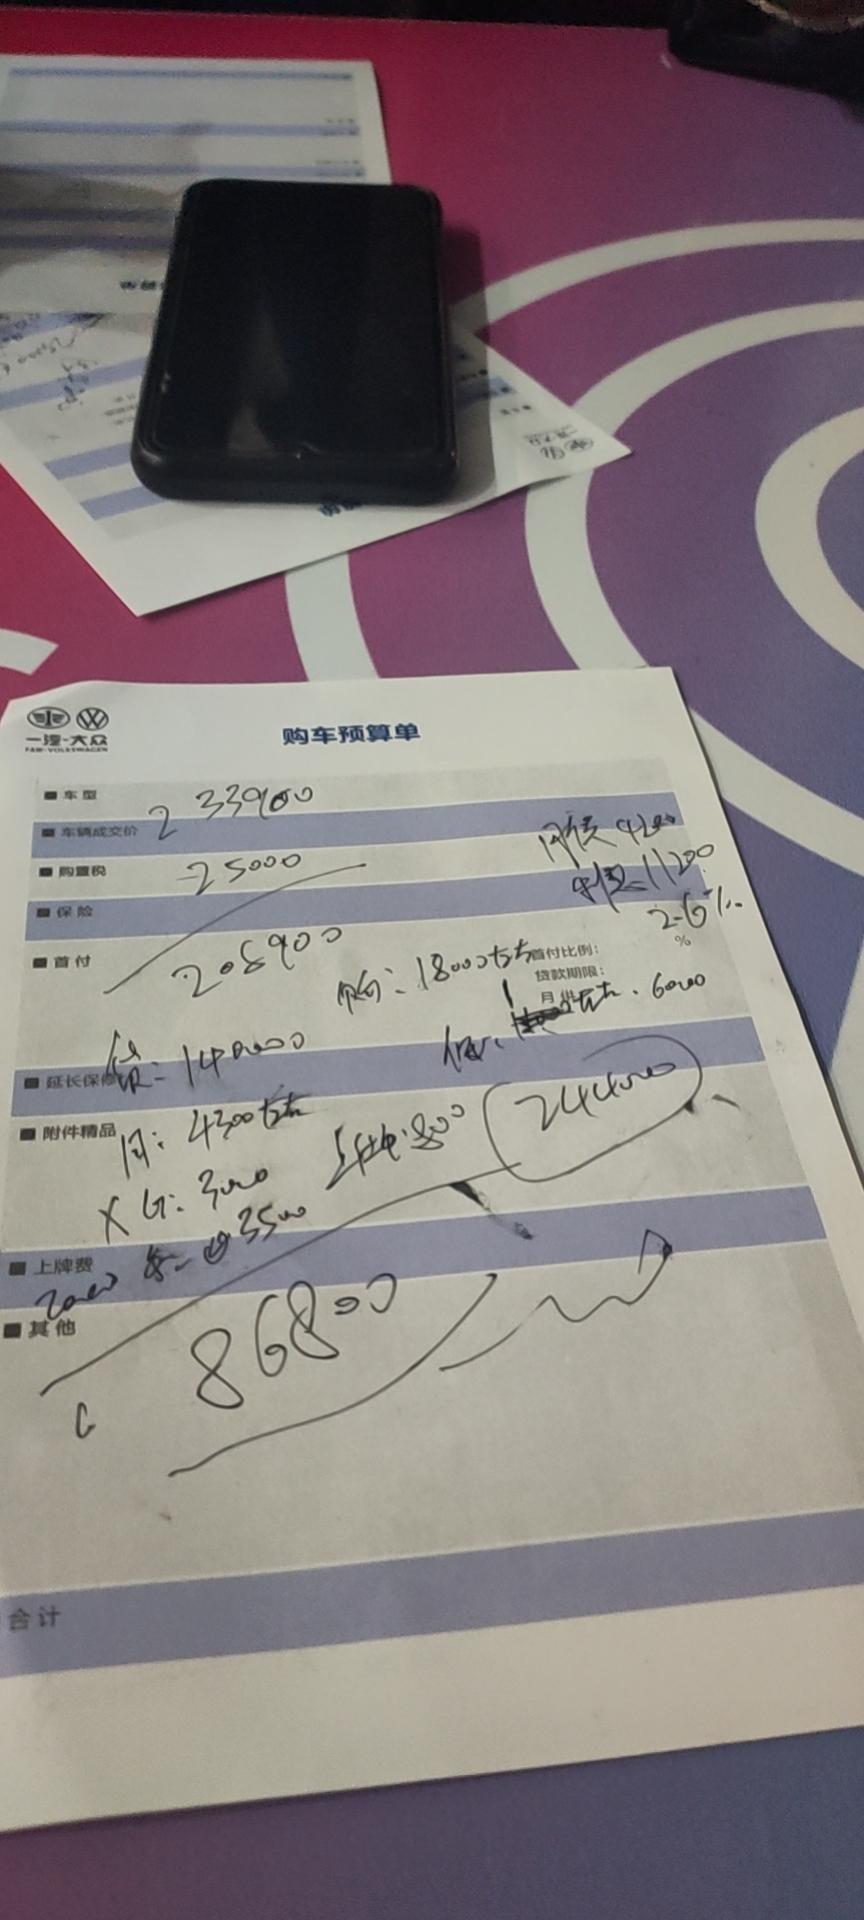 一汽-大众
FAW-VOLKSWAGEN
购车预算单
■ 车型
233900
■ 车辆成交价
■ 购置税
25000
4200
11200
■ 保险
2.6%
■ 首付
208900
购: 18000左右
首付比例:
%
贷款期限:
月供
6000
贷: 140000
保:
■ 延长保修
■ 附件精品
月: 4300左右
上牌: 800
244000
X G: 3000
3500
■ 上牌费
2000
■ 其他
86800
合计